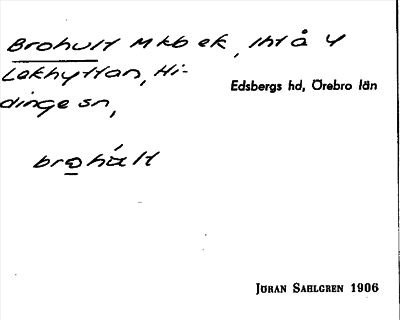 Brohult Mkb ek, 1ht å 4
Lekhyttan, Hi-
dinge sn,
Edsbergs hd, Örebro län
brohált
JÖRAN SAHLGREN 1906